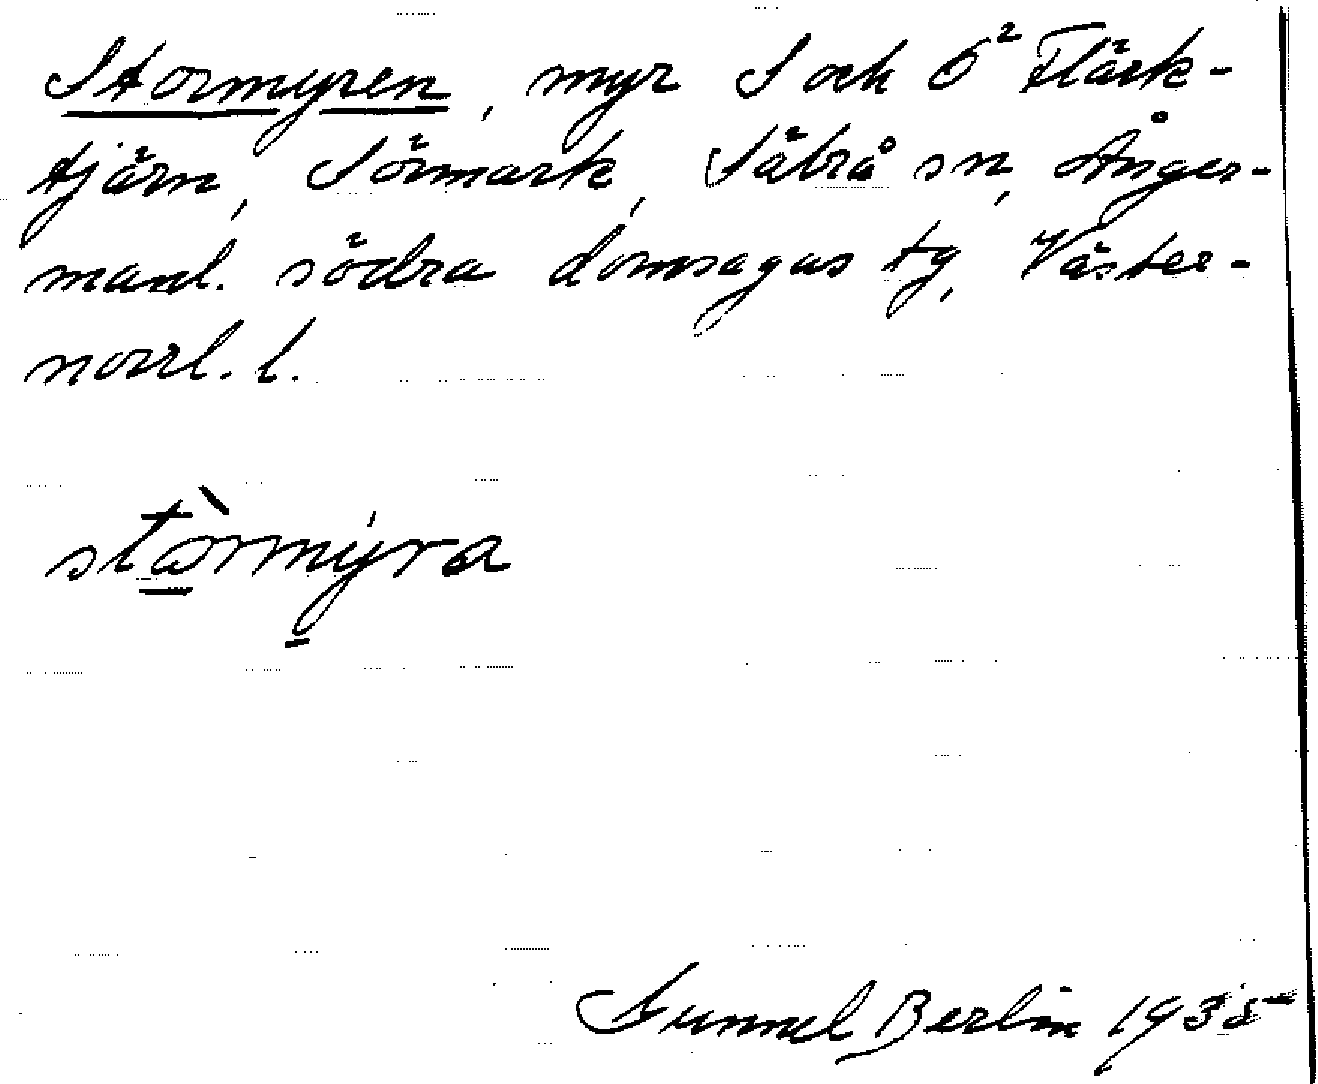 Stormyren, myr S och Ö Flärk-
tjärn, Sörmark, Säbrå sn, Ånger-
manl. södra domsagas tg, Väster-
norrl. l.
stòrmýra
Gunnel Berlin 1935